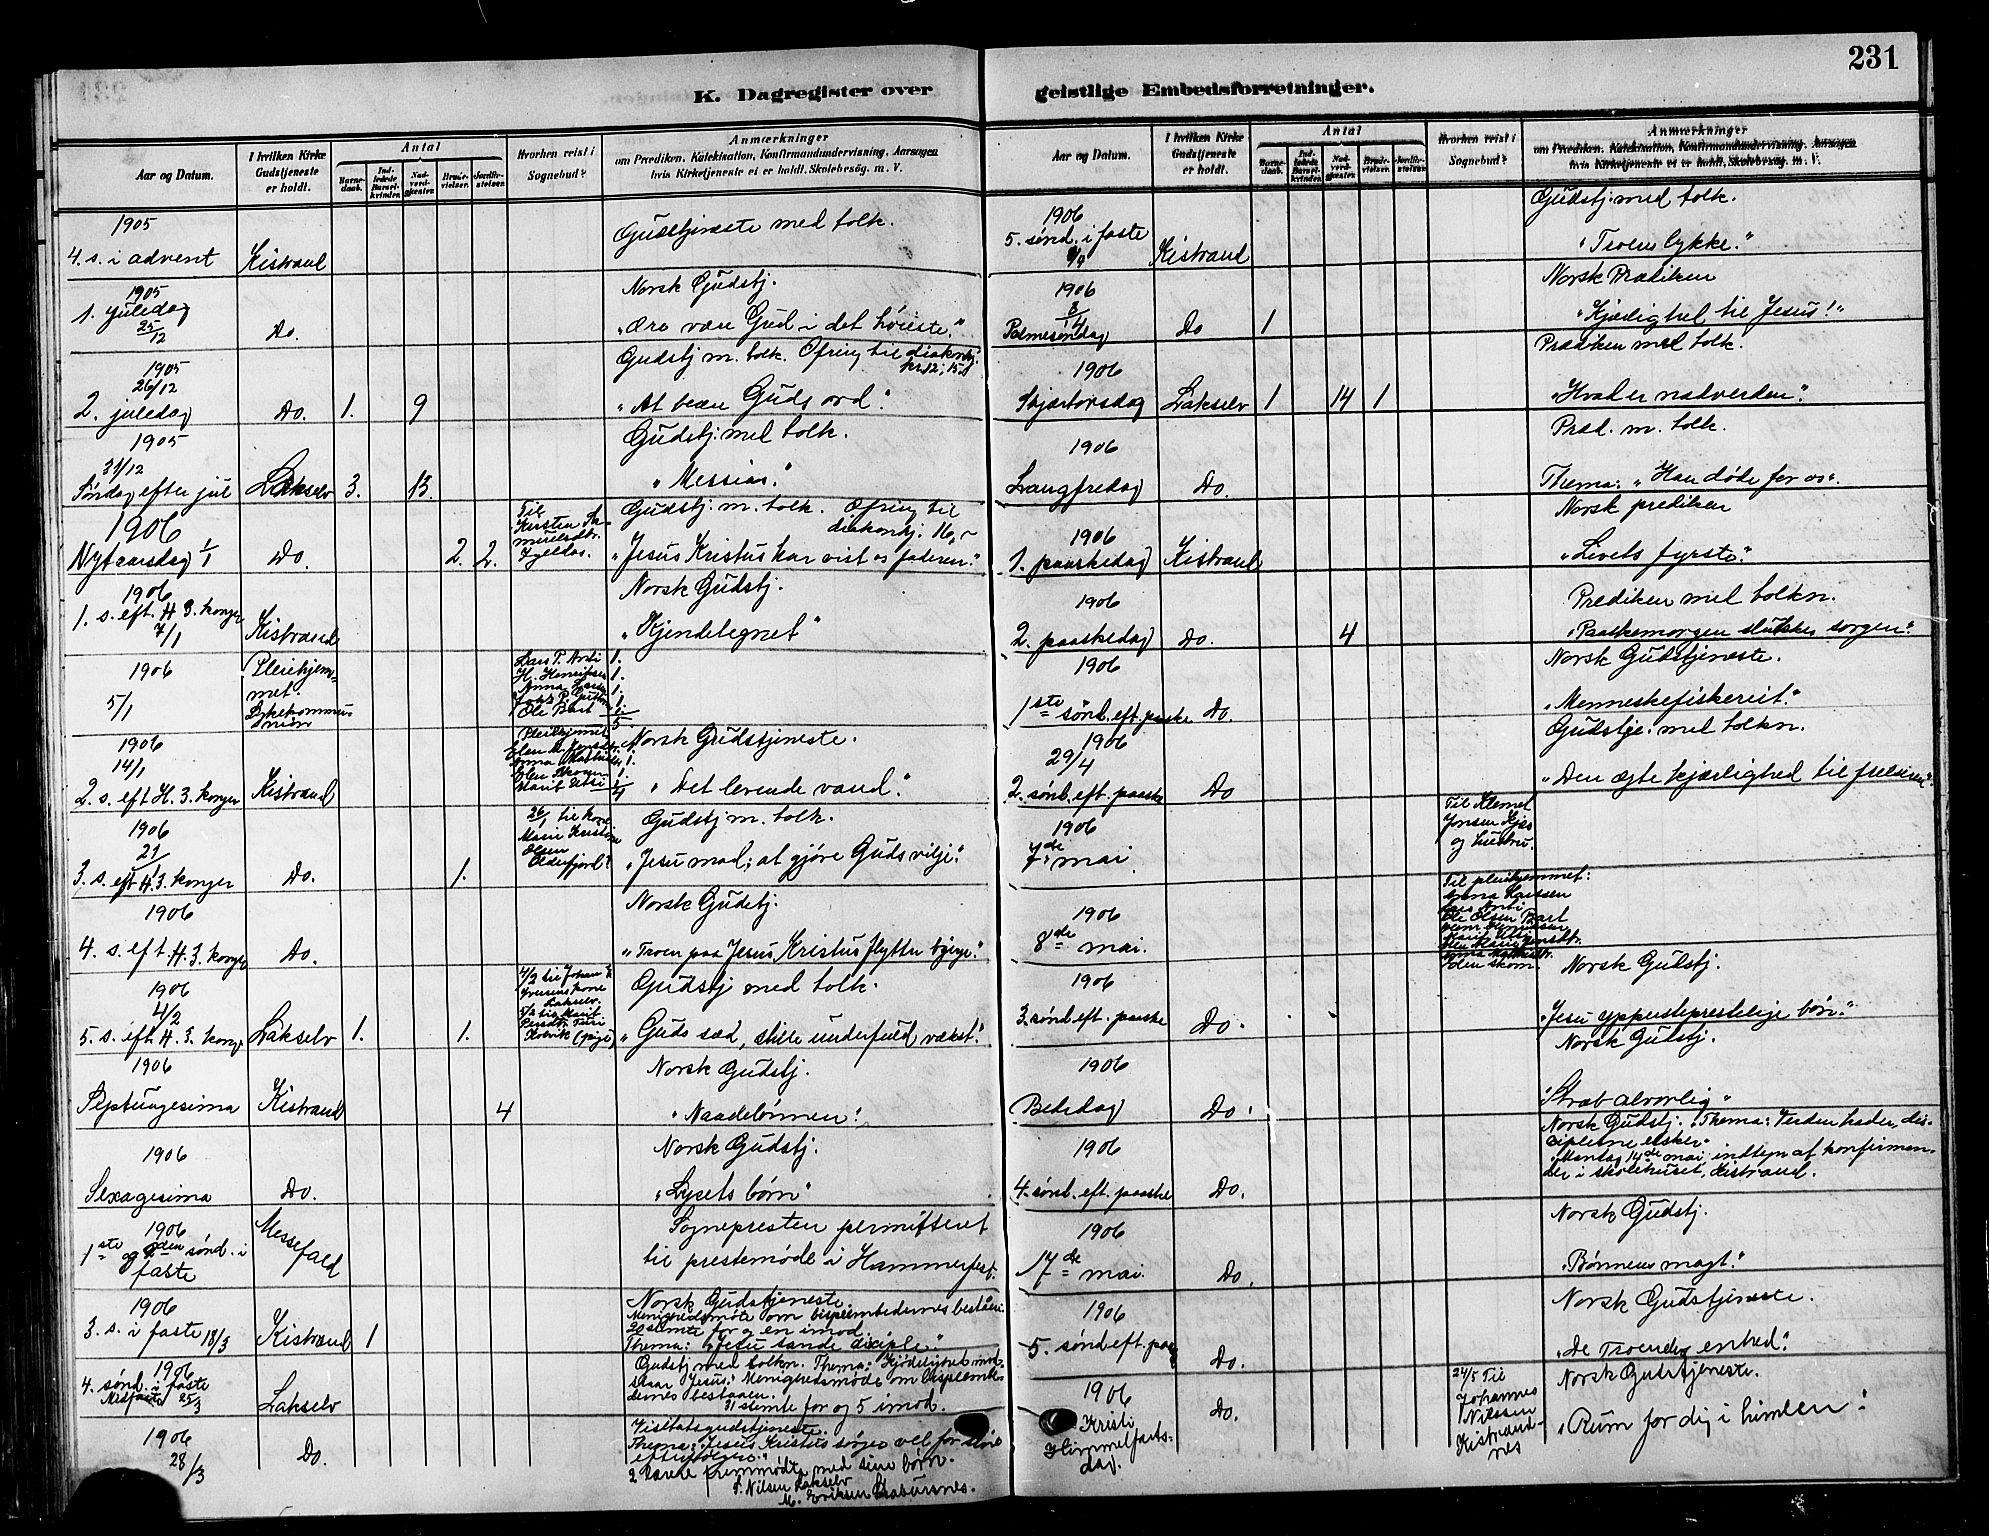 231
K. Dagregister over
geistlige Embedsforretninger.
Aar og Datum.
I hvilken Kirke
Gudstjeneste
er holdt.
Antal
Barne-
daab.
Ind-
ledede
Barsel-
kvinder.
Nad-
verd-
gjæster.
Brude-
vielser.
Jordfæ-
stelser.
Hvorhen reist i
Sognebud?
Anmærkninger
om Prædiken, Katekisation, Konfirmandundervisning, Aarsagen
hvis Kirketjeneste ei er holdt, Skolebesög. m. V.
1905
4. s. i advent
Kistrand
Gudstjeneste med tolk.
1905
1. juledag
25/12
Do.
Norsk Gudstj.
"Ære være Gud i det høieste."
1905
26/12
2. juledag
Do.
1.
9
Gudstj m. tolk. Ofring til diakonhj.
"At bære Guds ord".
1905
31/12
Søndag efter jul
Lakselv
3.
13.
Gudstj. med tolk.
"Messias".
1906
Nytaarsdag 1/1
Do.
2.
2.
Til
Kirsten
Gudstj. m. tolk. Ofring til
diakonhj. 16,-
"Jesus Kristus har vist os faderen".
1906
1. s. eft. H. 3. konger
7/1
Kistrand
Norsk Gudstj.
"Kjendetegnet"
1906
5/1
Pleiehjem-
met.
Lars P. Anti 1.
H. Henriksen 1.
Ole Bart
5
1906
14/1
2. s. eft H. 3. konger
Kistrand
Pleiehjemmet
4
Norsk Gudstjeneste.
"Det levende vand".
1906
21/1
3. s. eft H. 3. konger
Do.
1.
Marie Kristine
Olsen
Olderfjord.
Gudstj m. tolk.
"Jesu mad; at gjøre Guds vilje".
1906
4. s. eft. H. 3. konger
Do.
Norsk Gudstj.
"Troen paa Jesus Kristus flytter bjerge".
1906
4/2
5. s. eft H. 3. konger
Lakselv
1.
1.
4/2 til Johan
Iversens kone
Lakselv.
Gudstj med tolk.
"Guds sæd, stille underfuld vækst".
1906
Septuagesima
Kistrand
4
Norsk Gudstj.
"Naadelønnen".
1906
Sexagesima
Do.
Norsk Gudstj.
"Lysets børn"
1906
1ste og 2den sønd. i
faste
Messefald
Sognepresten permitteret
til prestemøde i Hammerfest.
1906
3. s. i faste 18/3
Kistrand
1
Norsk Gudstjeneste.
Menighedsmøte om bispeembedernes bestaaen.
20 stemte for og en imod.
Thema: "Jesu sande disciple".
1906
4. sønd. i faste
Midfaste 25/3
Lakselv
Gudstj med tolkn. Thema:
Jesus. Menighedsmøde om bispeembe-
dernes bestaaen.
31 stemte for og 5 imod.
1906
28/3
Do.
Visitatsgudstjeneste.
Thema: "Jesus Kristus sørger vel for sine
efterfølgere".
2 Lærere fremmødte med sine børn.
T. Nilsen Lakselv
M. Eriksen
Aar og Datum.
I hvilken Kirke
Gudstjeneste
er holdt.
Antal
Barne-
daab.
Ind-
ledede
Barsel-
kvinder.
Nad-
verd-
gjæster.
Brude-
vielser.
Jordfæ-
stelser.
Hvorhen reist i
Sognebud?
Anmærkninger
om Prædiken, Katekisation, Konfirmandundervisning, Aarsagen
hvis Kirketjeneste ei er holdt, Skolebesög. m. V.
1906
5. sønd. i faste
Kistrand
Gudstj. med tolk.
"Troens lykke."
1906
8/4
Palmesøndag
Do
1
Norsk Prædiken
"Kjærlighed til Jesus!"
1906
Skjærtorsdag
Lakselv
1
14
1
Prædiken med tolk.
"Hvad er nadverden".
1906
Langfredag
Do.
Præd. m. tolk.
Thema: "Han døde for os".
1906
1. paaskedag
Kistrand
Norsk prediken
"Livets fyrste".
1906
2. paaskedag
Do.
4
Prediken med tolkn.
"Paaskemorgen slukker sorgen".
1906
1ste sønd. eft. paaske
Do.
Norsk Gudstjeneste.
"Menneskefiskeriet".
1906
29/4
2. sønd. eft. paaske
Do
Gudstje. med tolkn.
"Den ægte kjærlighed til frelseren".
1906
7de mai
Til Klemet
Jonsen Kjæs
og hustru.
1906
8de mai.
Til pleiehjemmet:
Anna Larsen
Lars Anti
Ole Olsen Bart
1906
3. sønd eft. paaske
Do.
Norsk Gudstj.
"Jesu ypperstepresterlige bøn".
1906
Bededag
Do.
Norsk Gudstj.
"Stræb alvorlig"
1906
4. sønd. eft. paaske
Do.
Norsk Gudstj. Thema: Verden hader, dis-
ciplerne elsker.
Mandag 14de mai indtegn. af konfirman-
der i skolehuset, Kistrand.
1906
17de mai.
Do.
Norsk Gudstj.
"Bønnens magt".
1906
5. sønd eft. paaske
Do.
Norsk Gudstjeneste.
"De Troendes enhed".
1906
Kristi
Himmelfarts-
dag.
Do.
24/5 Til
Johannes
Nilssen
Kistrand-
nes
Norsk Gudstjeneste.
"Rum for dig i himlen".